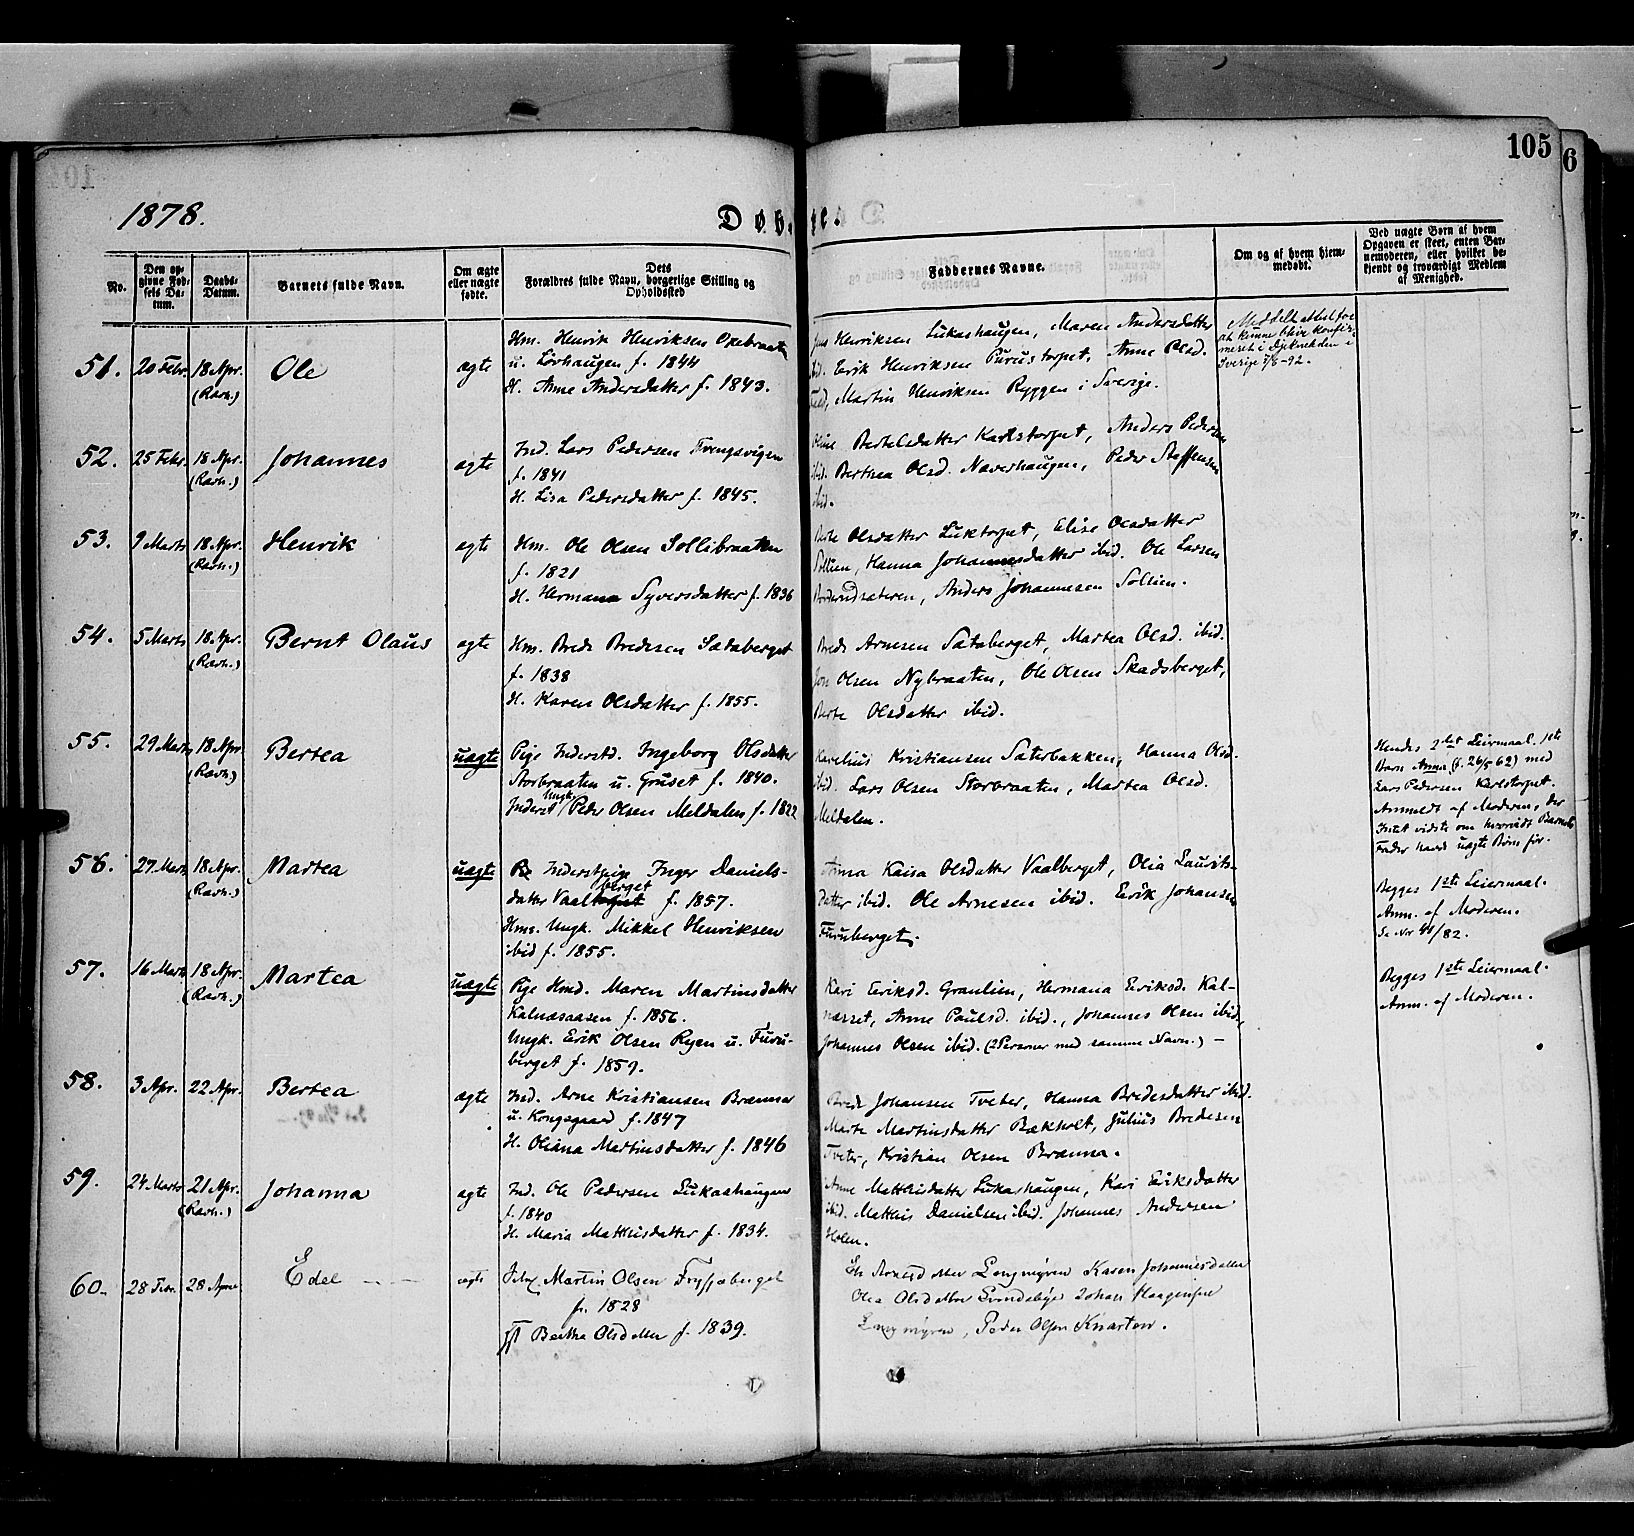 105
6
1878.
Døbte.
No.
Den opgivne Fødsels Datum.
Daabs-Datum.
Barnets fulde Navn.
Om ægte eller uægte fødte.
Dets Forældres fulde Navn, borgerlige Stilling og Opholdssted
Faddernes Navne.
Om og af hvem hjemmedøbt.
Ved uægte Børn af hvem Opgaven er skeet, enten Barnemoderen, eller hvilket bekjendt og troværdigt Medlem af Menighed.
51. 20 Febr. 18 Apr. (Ravh.) Ole ægte
Hm. Henrik Henriksen
u. Lövhaugen f. 1844
H. Anne Andersdatter f. 1843.
Henriksen Lukashaugen, Maren Andersdatter
ibid. Erik Henriksen Purustorpet, Anne Olsd.
ibid, Martin Henriksen Ryggen i Sverige.
Meddelt attest for
at kunne blive konfir-
meret i i
Sverige 7/6-92.
52. 25 Febr. 18 Apr. (Ravh.) Johannes ægte
Ind. Lars Pedersen Trængsvigen
f. 1841
H. Lisa Pedersdatter f. 1845.
Oline Bertelsdatter Karlstorpet, Anders Pedersen
ibid. Berthea Olsd. Naverhaugen, Peder Steffensen
ibid.
53. 9 Marts 18 Apr. (Ravh.) Henrik ægte
Hm. Ole Olsen Sollibraaten
f. 1821
H. Hermana Syversdatter f. 1836
Berte Olsdatter Luktorpet, Elise Olsdatter
Sollien, Hanna Johannesdatter ibid. Ole Larsen
Anders Johannesen Sollien.
54. 5 Marts 18 Apr. (Ravh.) Bernt Olaus ægte
Hm. Brede Bredesen Sætaberget
f. 1838
H. Karen Olsdatter f. 1855.
Brede Arnesen Sætaberget, Martea Olsd. ibid.
Jon Olsen Nybraaten, Ole Olsen Skadsberget,
Berte Olsdatter ibid.
55. 29 Marts 18 Apr. (Ravh.) Bertea uægte
Pige Inderstd. Ingeborg Olsdatter
Storbraaten u. Gruset f. 1840.
Inderst Ungk. Peder Olsen Meldalen f. 1822
Karelius Kristiansen Sæterbakken, Hanna Olsd.
ibid. Lars Olsen Storbraaten, Martea Olsd.
Meldalen.
Hendes 2det Leiermaal. 1ste
Barn Anna (f. 26/5 62) med
Lars Pedersen Karlstorpet.
Anmeldt af Moderen, der
Intet vidste om hvorvidt Barnets
Fader havde uægte Börn för.
56. 27 Marts 18 Apr. (Ravh.) Martea uægte
Inderstpige Inger Daniels-
datter Vaalberget f. 1857.
Hms. Ungk. Mikkel Henriksen
ibid f. 1855.
Anna Kaisa Olsdatter Vaalberget, Olia Laurits-
datter ibid. Ole Arnesen ibid. Erik Johansen
Furuberget.
Begges 1ste Leiermaal.
Anm. af Moderen.
Se Nr 41/82.
57. 16 Marts 18 Apr. (Ravh.) Martea uægte
Pige Hmd. Maren Martinsdatter
Kalnæsaasen f. 1856.
Ungk. Erik Olsen Ryen u. Furu-
berget f. 1859.
Kari Eriksd. Graulien, Hermana Eriksd. Kal-
næsset, Anne Paulsd. ibid., Johannes Olsen ibid.,
Johannes Olsen ibid. (2 Personer med samme Navn.) -
Begges 1ste Leiermaal.
Anm. af Moderen.
58. 3 Apr. 22 Apr. Bertea ægte
Ind. Arne Kristiansen Brænna
u. Kongsgaard f. 1847
H. Oliana Martinsdatter f. 1846
Brede Johansen Tveter, Hanna Bredesdatter ibid.
Marte Martinsdatter Bækholt, Julius Bredesen
Tveter, Kristian Olsen Brænna.
59. 24 Marts 21 Apr. (Ravh.) Johanna ægte
Ind. Ole Pedersen Lukashaugen
f. 1840
H. Maria Matthisdatter f. 1834.
Anne Matthisdatter Lukashaugen, Kari Eriksdatter
ibid. Matthis Danielsen ibid. Johannes Andersen
Holen.
60. 28 Febr. 28 April Edel ægte
Martin Olsen Frysjøberget
f. 1828
H Bertha Olsdatter f. 1839.
Arnesdatter Langmyren Karen Johannesdatter
Olea Olsdatter Svendsbye Johan Haagensen
Langmyren, Peder Olsen Knarten.